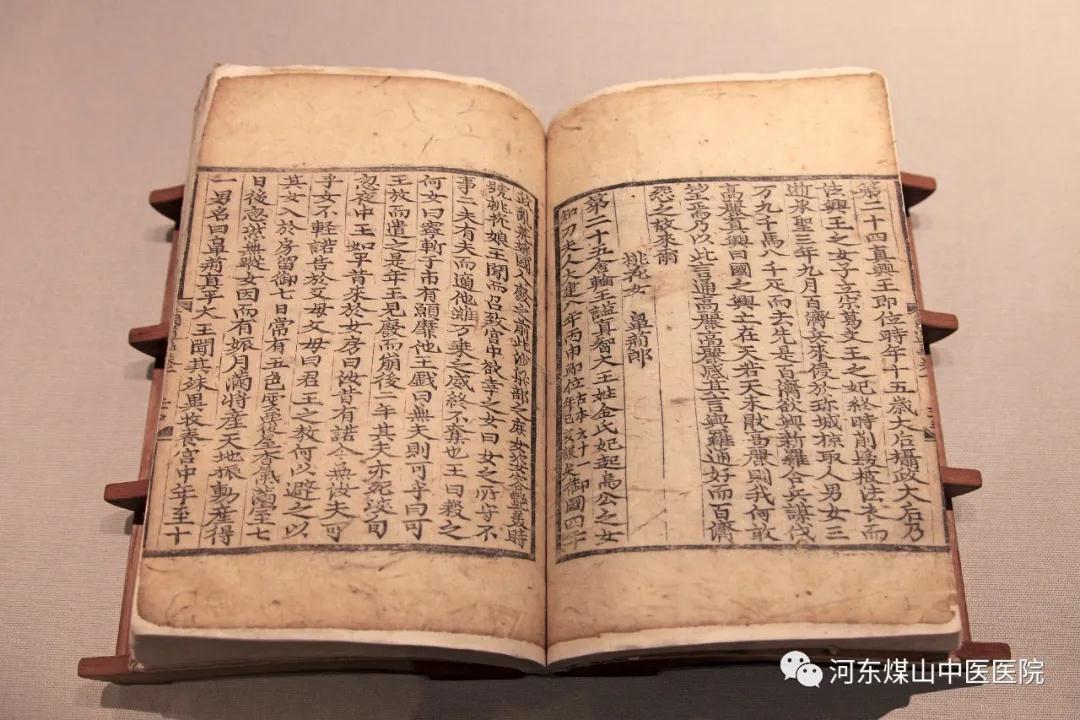 第二十四真興王即位時年十五歲太后攝政太后乃
法興王之女子立宗葛文王之妃終時削髮被法衣而
逝承聖三年九月百濟兵來侵於珍城掠取人男女三
万九千馬八千疋而去先是百濟欲與新羅合兵謀伐
高麗真興曰國之興亡在天若天未猒高麗則我何敢
望焉乃以此言通高麗高麗感其言與羅通好而百濟
怨之故來爾
桃花女 鼻荊郎
第二十五舍輪王謚真智大王姓金氏妃起烏公之女
知刀夫人大建八年丙申即位古本云十一年己亥誤矣御國四年
政亂荒婬國人廢之前此沙梁部之庶女姿容艶美時
號桃花娘王聞而召致宮中欲幸之女曰女之所守不
事二夫有夫而適他雖万乗之威終不奪也王曰殺之
何女曰寧斬于市有願靡他王戱曰無夫則可乎曰可
王放而遣之是年王見廢而崩後二年其夫亦死浹旬
忽夜中王如平昔來於女房曰汝昔有諾今無汝夫可
乎女不輕諾告於父母父母曰君王之教何以避之以
其女入於房留御七日常有五色雲覆屋香氣滿室七
日後忽然無蹤女因而有娠月滿將産天地振動産得
一男名曰鼻荊真平大王聞其殊異收養宮中年至十
河东煤山中医医院